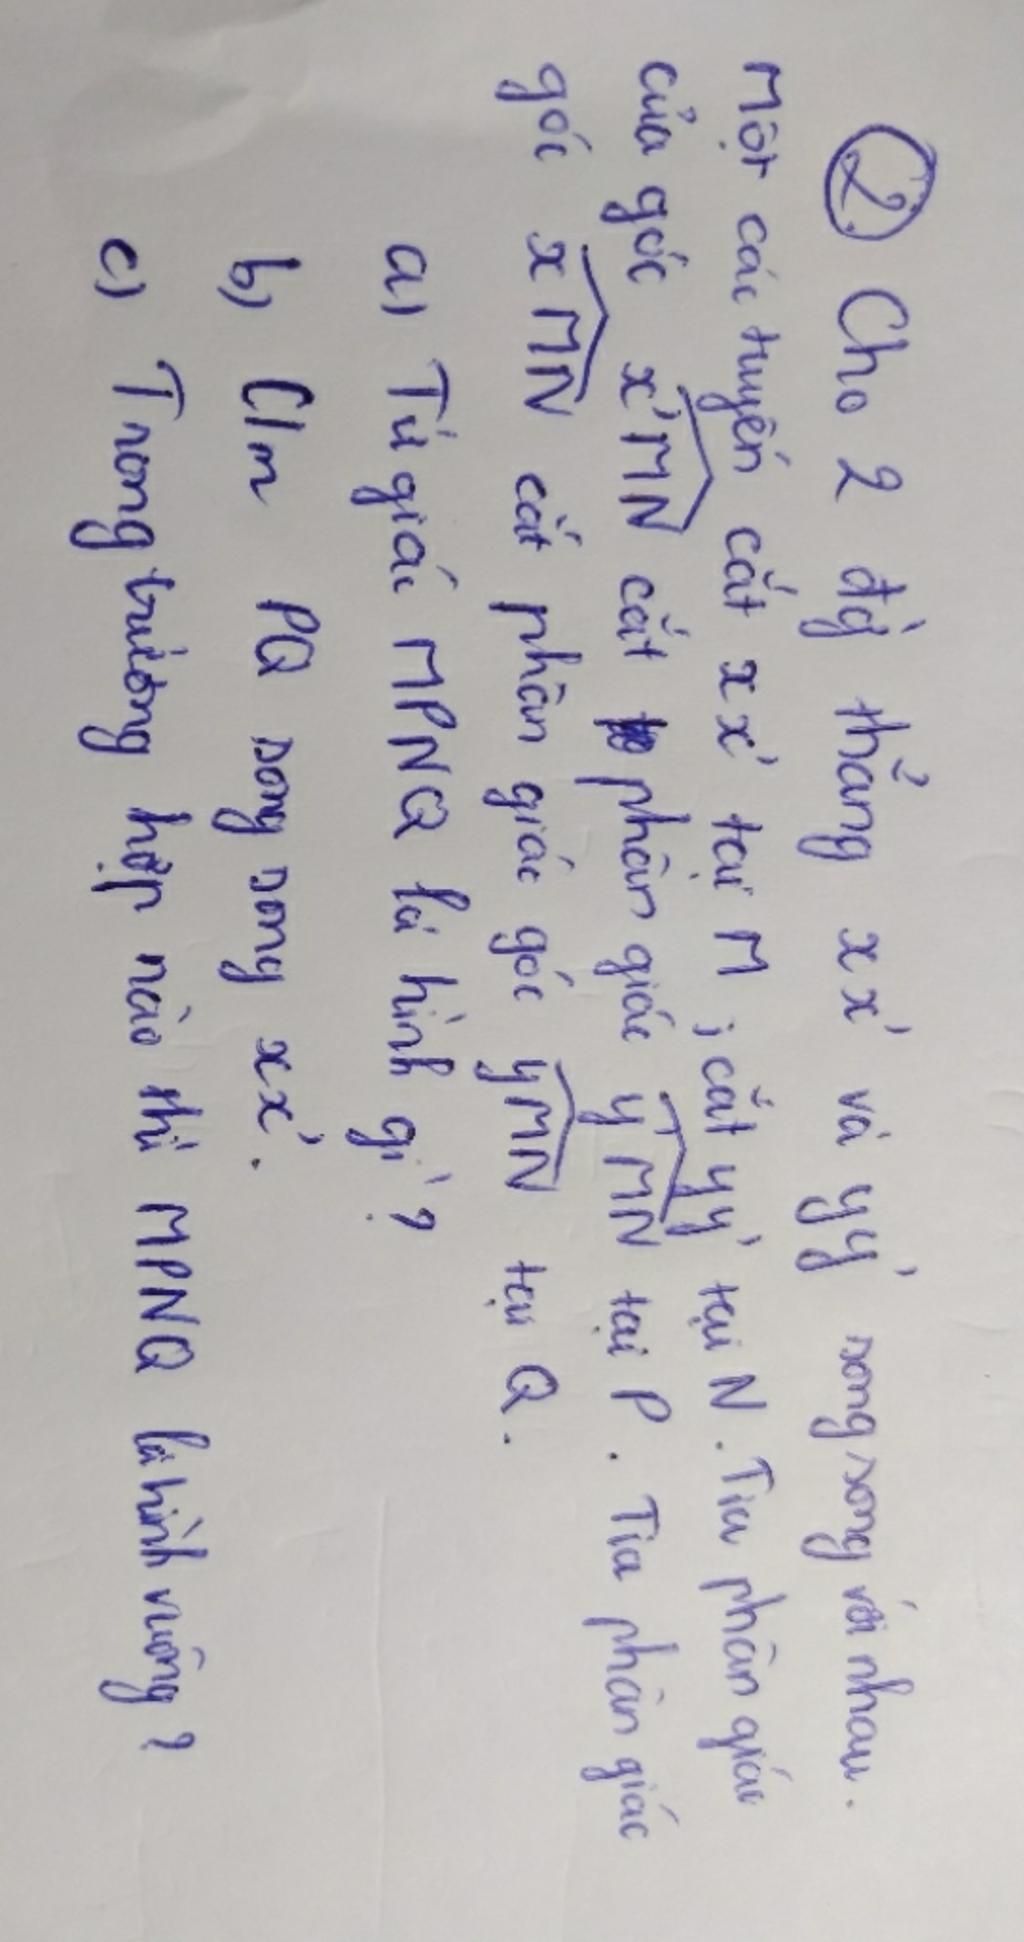 ② Cho 2 đg thẳng xx' và yy' song song với nhau.
Một cát tuyến cắt xx' tại M ; cắt yy' tại N. Tia phân giác
của góc x'MN cắt phân giác y'MN tại P. Tia phân giác
góc xMN cắt phân giác góc yMN tại Q.
a) Tứ giác MPNQ là hình gì?
b) C/m PQ song song xx'.
c) Trong trường hợp nào thì MPNQ là hình vuông?